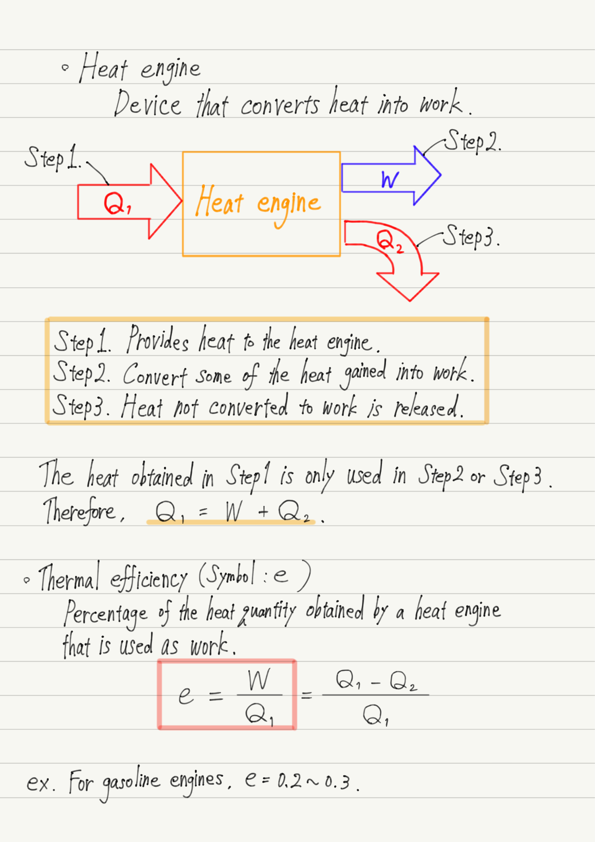 ◦ Heat engine
Device that converts heat into work.
Step1.
Step2.
Q₁
Heat engine
W
Q₂
Step3.
Step1. Provides heat to the heat engine.
Step2. Convert some of the heat gained into work.
Step3. Heat not converted to work is released.
The heat obtained in Step1 is only used in Step2 or Step3.
Therefore, Q₁ = W + Q₂.
◦ Thermal efficiency (Symbol : e)
Percentage of the heat quantity obtained by a heat engine
that is used as work.
e = W/Q₁ = (Q₁ − Q₂)/Q₁
ex. For gasoline engines, e = 0.2 ~ 0.3.